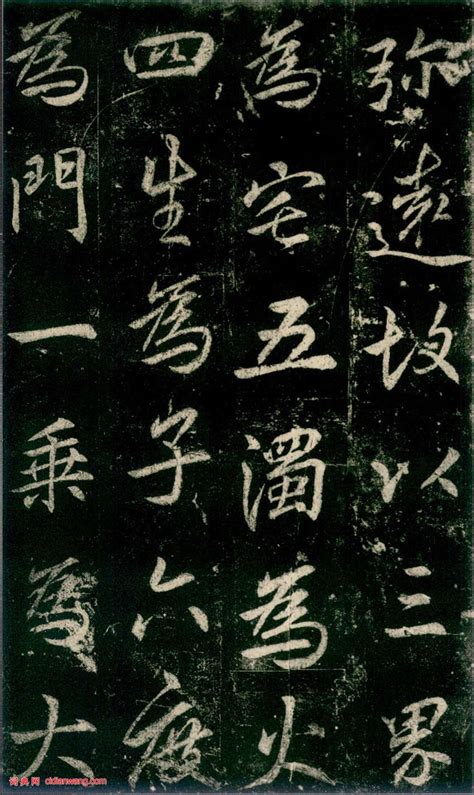 弥遠故以三界
為宅五濁為火
四生為子六度
為門一乘為大
词典网 cidianwang.com